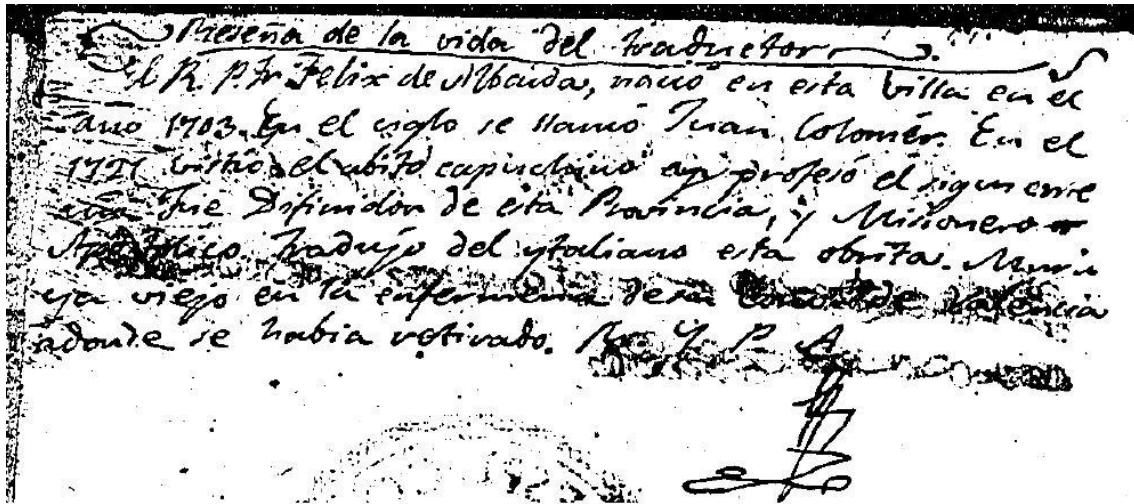 Reseña de la vida del traductor.
El R. P. Fr. Felix de Albaida, nació en esta Villa en el
año 1703. En el siglo se llamó Juan Colomér. En el
vistió el abito capuchino y profesó el siguiente
año Fue Difinidor de esta Provincia, y Misionero
Apostolico. Tradujo del ytaliano esta obrita. Murió
ya viejo en la enfermeria de su Valencia
adonde se habia retirado. R. Y. P. A.